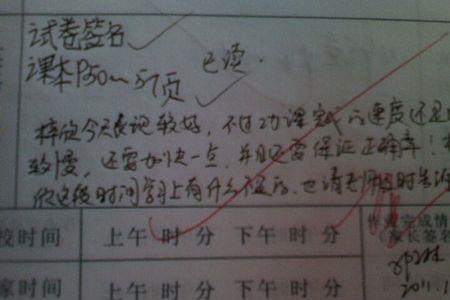 试卷签名
课本P50~57页
已读.
梓欣今天表现较好，不过功课完成的速度还是
较慢，还要加快一点，并且还要保证正确率！
欣这段时间学习上有什么不足，也请老师及时告
校时间 上午 时 分 下午 时 分
完成情
家长签名
家时间 上午 时 分 下午 时 分
2011.1